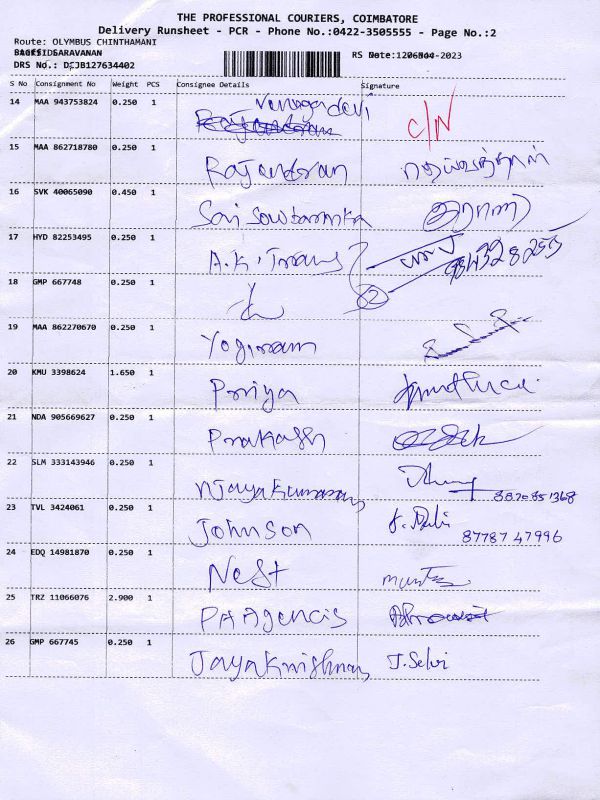 THE PROFESSIONAL COURIERS, COIMBATORE
Delivery Runsheet - PCR - Phone No.:0422-3505555 - Page No.:2
Route: OLYMBUS CHINTHAMANI
SARAVANAN RS Date: 2023
DRS No.: DCJB127634402
S No Consignment No Weight PCS Consignee Details Signature
14 MAA 943753824 0.250 1 C/N
15 MAA 862718780 0.250 1 Rajendran
16 SVK 40065090 0.450 1 Sai
17 HYD 82253495 0.250 1 A.K.
18 GMP 667748 0.250 1 2
19 MAA 862270670 0.250 1 Yogiram
20 KMU 3398624 1.650 1 Priya
21 NDA 905669627 0.250 1 Prakash
22 SLM 333143946 0.250 1 N Jayakumaran
23 TVL 3424061 0.250 1 Johnson 87787 47996
24 EDQ 14981870 0.250 1 Nest
25 TRZ 11066076 2.900 1 PA Agencis
26 GMP 667745 0.250 1 Jayakrishnan J. Selvi